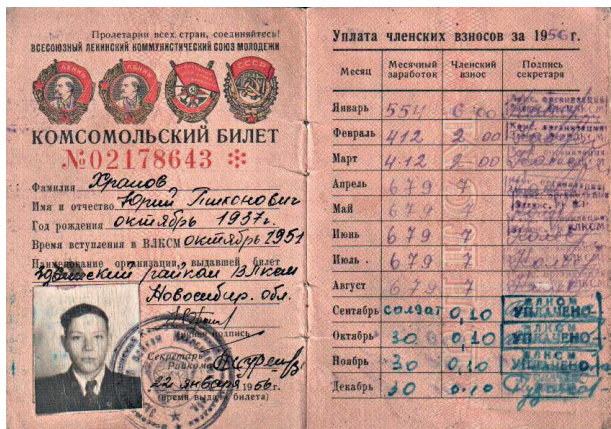 Пролетарии всех стран, соединяйтесь!
ВСЕСОЮЗНЫЙ ЛЕНИНСКИЙ КОММУНИСТИЧЕСКИЙ СОЮЗ МОЛОДЕЖИ
КОМСОМОЛЬСКИЙ БИЛЕТ
№02178643
Фамилия Храмов
Имя и отчество Юрий
Год рождения октябрь 1937г.
Время вступления в ВЛКСМ октябрь 1951
Наименование организации, выдавшей билет
райком ВЛКСМ
Новосибир. обл.
подпись
Секретарь
Райкома
22 января 1956 г.
(время выдачи билета)
Уплата членских взносов за 1956 г.
Месяц Месячный заработок Членский взнос Подпись секретаря
Январь 554 6 00
Февраль 412 2-00
Март 412 2-00
Апрель 679 7
Май 679 7
Июнь 679 7
Июль 679 7
Август 679 7
Сентябрь солдат 0,10 ВЛКСМ УПЛАЧЕНО
Октябрь 30 0,10 ВЛКСМ УПЛАЧЕНО
Ноябрь 30 0,10 ВЛКСМ УПЛАЧЕНО
Декабрь 30 0.10